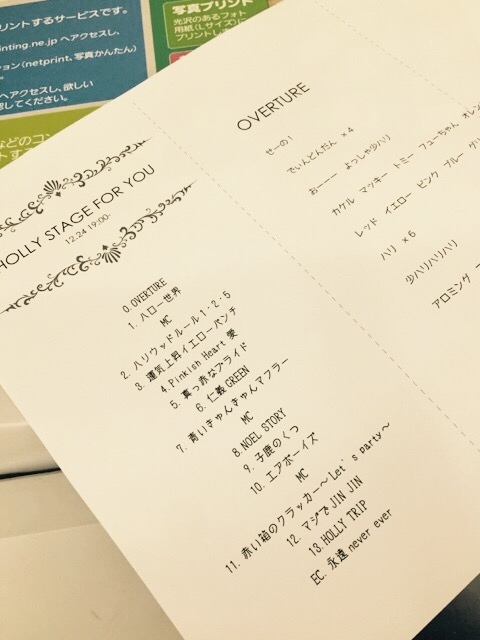 リントするサービスです。
inting.ne.jp へアクセスし、
ション(netprint、写真かんたん)
へアクセスし、欲しい
認してください。
などのコン
写真プリント
光沢のあるフォト
用紙(Lサイズ)に
プリントしま
HOLLY STAGE FOR YOU
12.24 19:00-
0. OVERTURE
1. ハロー世界
MC
2. ハリウッドルール1・2・5
3. 運気上昇イエローパンチ
4. Pinkish Heart 愛
5. 真っ赤なプライド
6. 仁義GREEN
7. 青いきゅんきゅんマフラー
MC
8. NOEL STORY
9. 子鹿のくつ
10. エアボーイズ
MC
11. 赤い箱のクラッカー〜Let's party〜
12. マジでJIN JIN
13. HOLLY TRIP
EC. 永遠 never ever
OVERTURE
せーの!
でぃんとんたん ×4
おーーー よっしゃ少ハリ
カケル マッキー トミー フューちゃん オレン
レッド イエロー ピンク ブルー グリ
ハリ ×6
少ハリハリハリ
アロミング